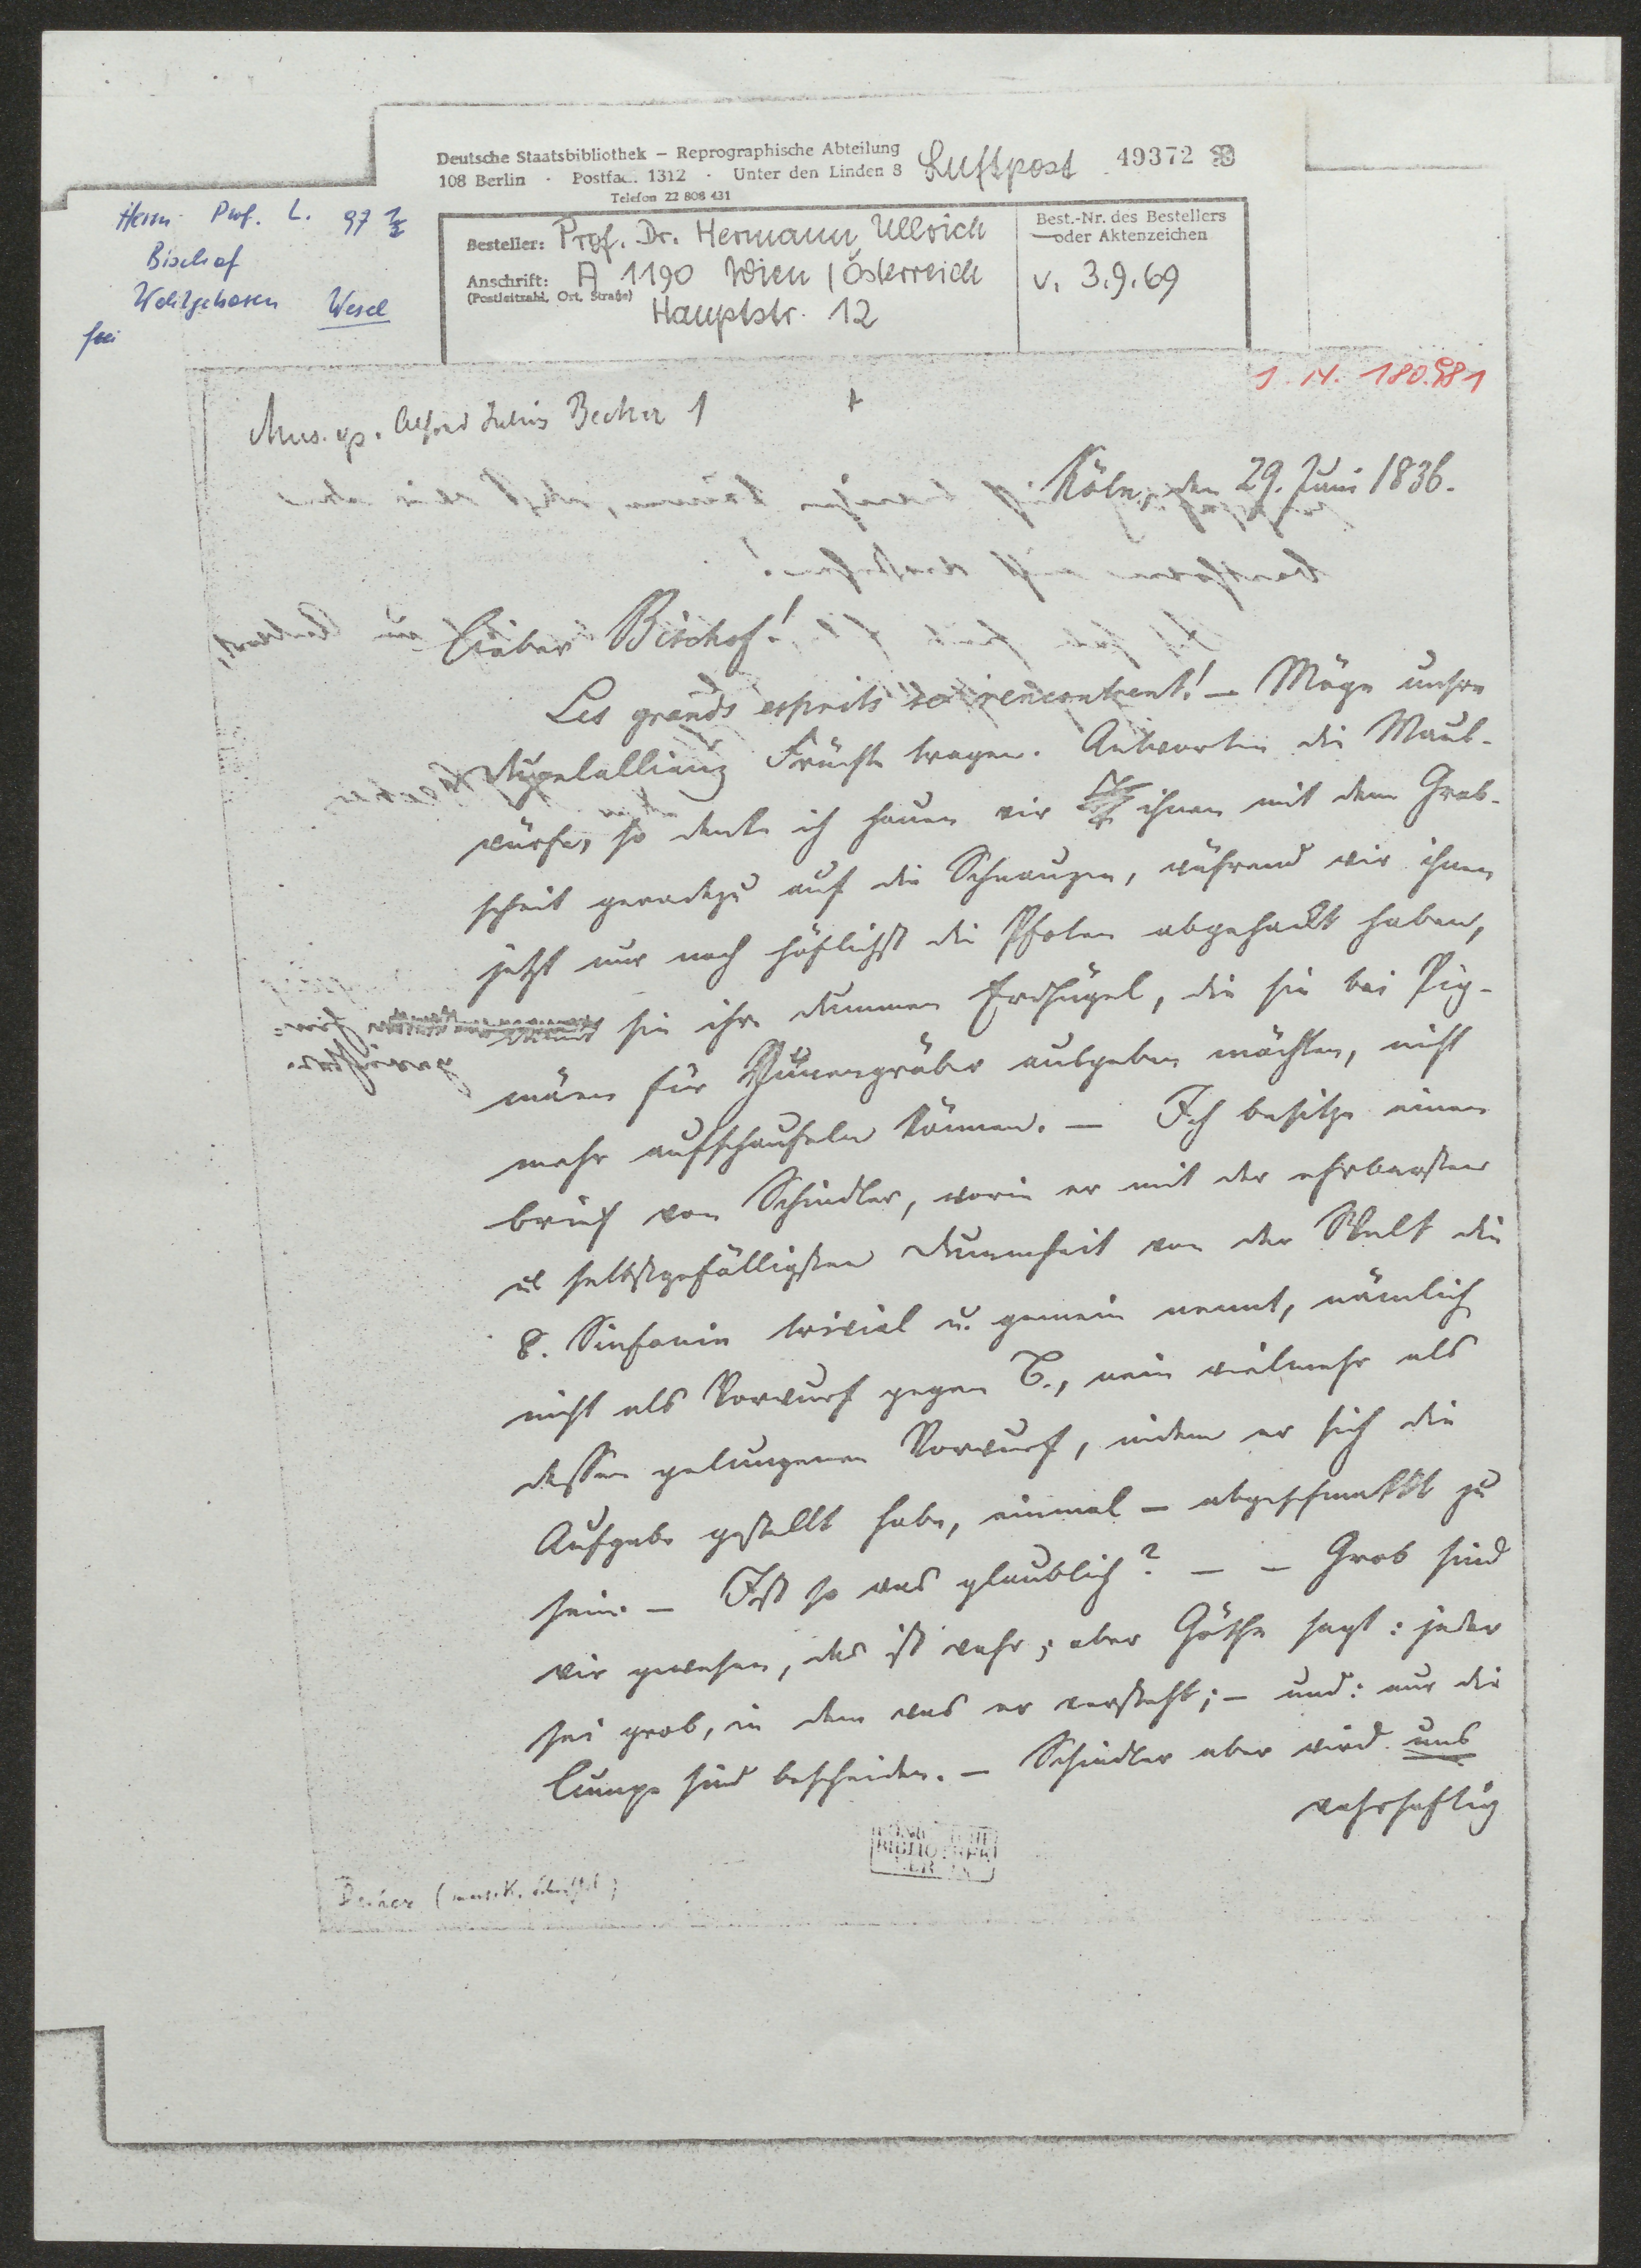 Deutsche Staatsbibliothek – Reprographische Abteilung
108 Berlin · Postfach 1312 · Unter den Linden 8
Telefon 22 808 431
Luftpost 49372
Besteller: Prof. Dr. Hermann Ullrich
Anschrift: A 1190 Wien / Österreich
(Postleitzahl, Ort, Straße)
Hauptstr. 12
Best.-Nr. des Bestellers
oder Aktenzeichen
v. 3.9.69
Herrn Prof. L.
Bischof
Wohlgeboren Wesel
frei
Mus. ep. Alfred Julius Becher 1
Köln, den 29. Juni 1836.
Lieber Bischof!
Les grands esprits se rencontrent! – Möge unsre
Früchte tragen. Antworten die Maul-
würfe, so denke ich hauen wir ihnen mit dem Grab-
scheit geradezu auf die Schnauzen, während wir ihnen
jetzt nur noch höflichst die Pfoten abgehackt haben,
sie ihre dummen Erdhügel, die sie bei Pig-
mäen für Hünengräber ausgeben möchten, nicht
mehr aufschaufeln können. – Ich besitze einen
Brief von Schindler, worin er mit der ehrbarsten
u selbstgefälligsten Dummheit von der Welt die
8. Sinfonie trivial u. gemein nennt, nämlich
nicht als Vorwurf gegen B., nein vielmehr als
dessen gelungenen Vorwurf, indem er sich die
Aufgabe gestellt habe, einmal – abgeschmackt zu
sein. – Ist so was glaublich? – – Grob sind
wir gewesen, das ist wahr; aber Göthe sagt: jeder
sei grob, in dem was er versteht; – und: nur die
Lumpe sind bescheiden. – Schindler aber wird uns
wahrhaftig
BIBLIOTHEK
Becher (musik. Schriftst.)